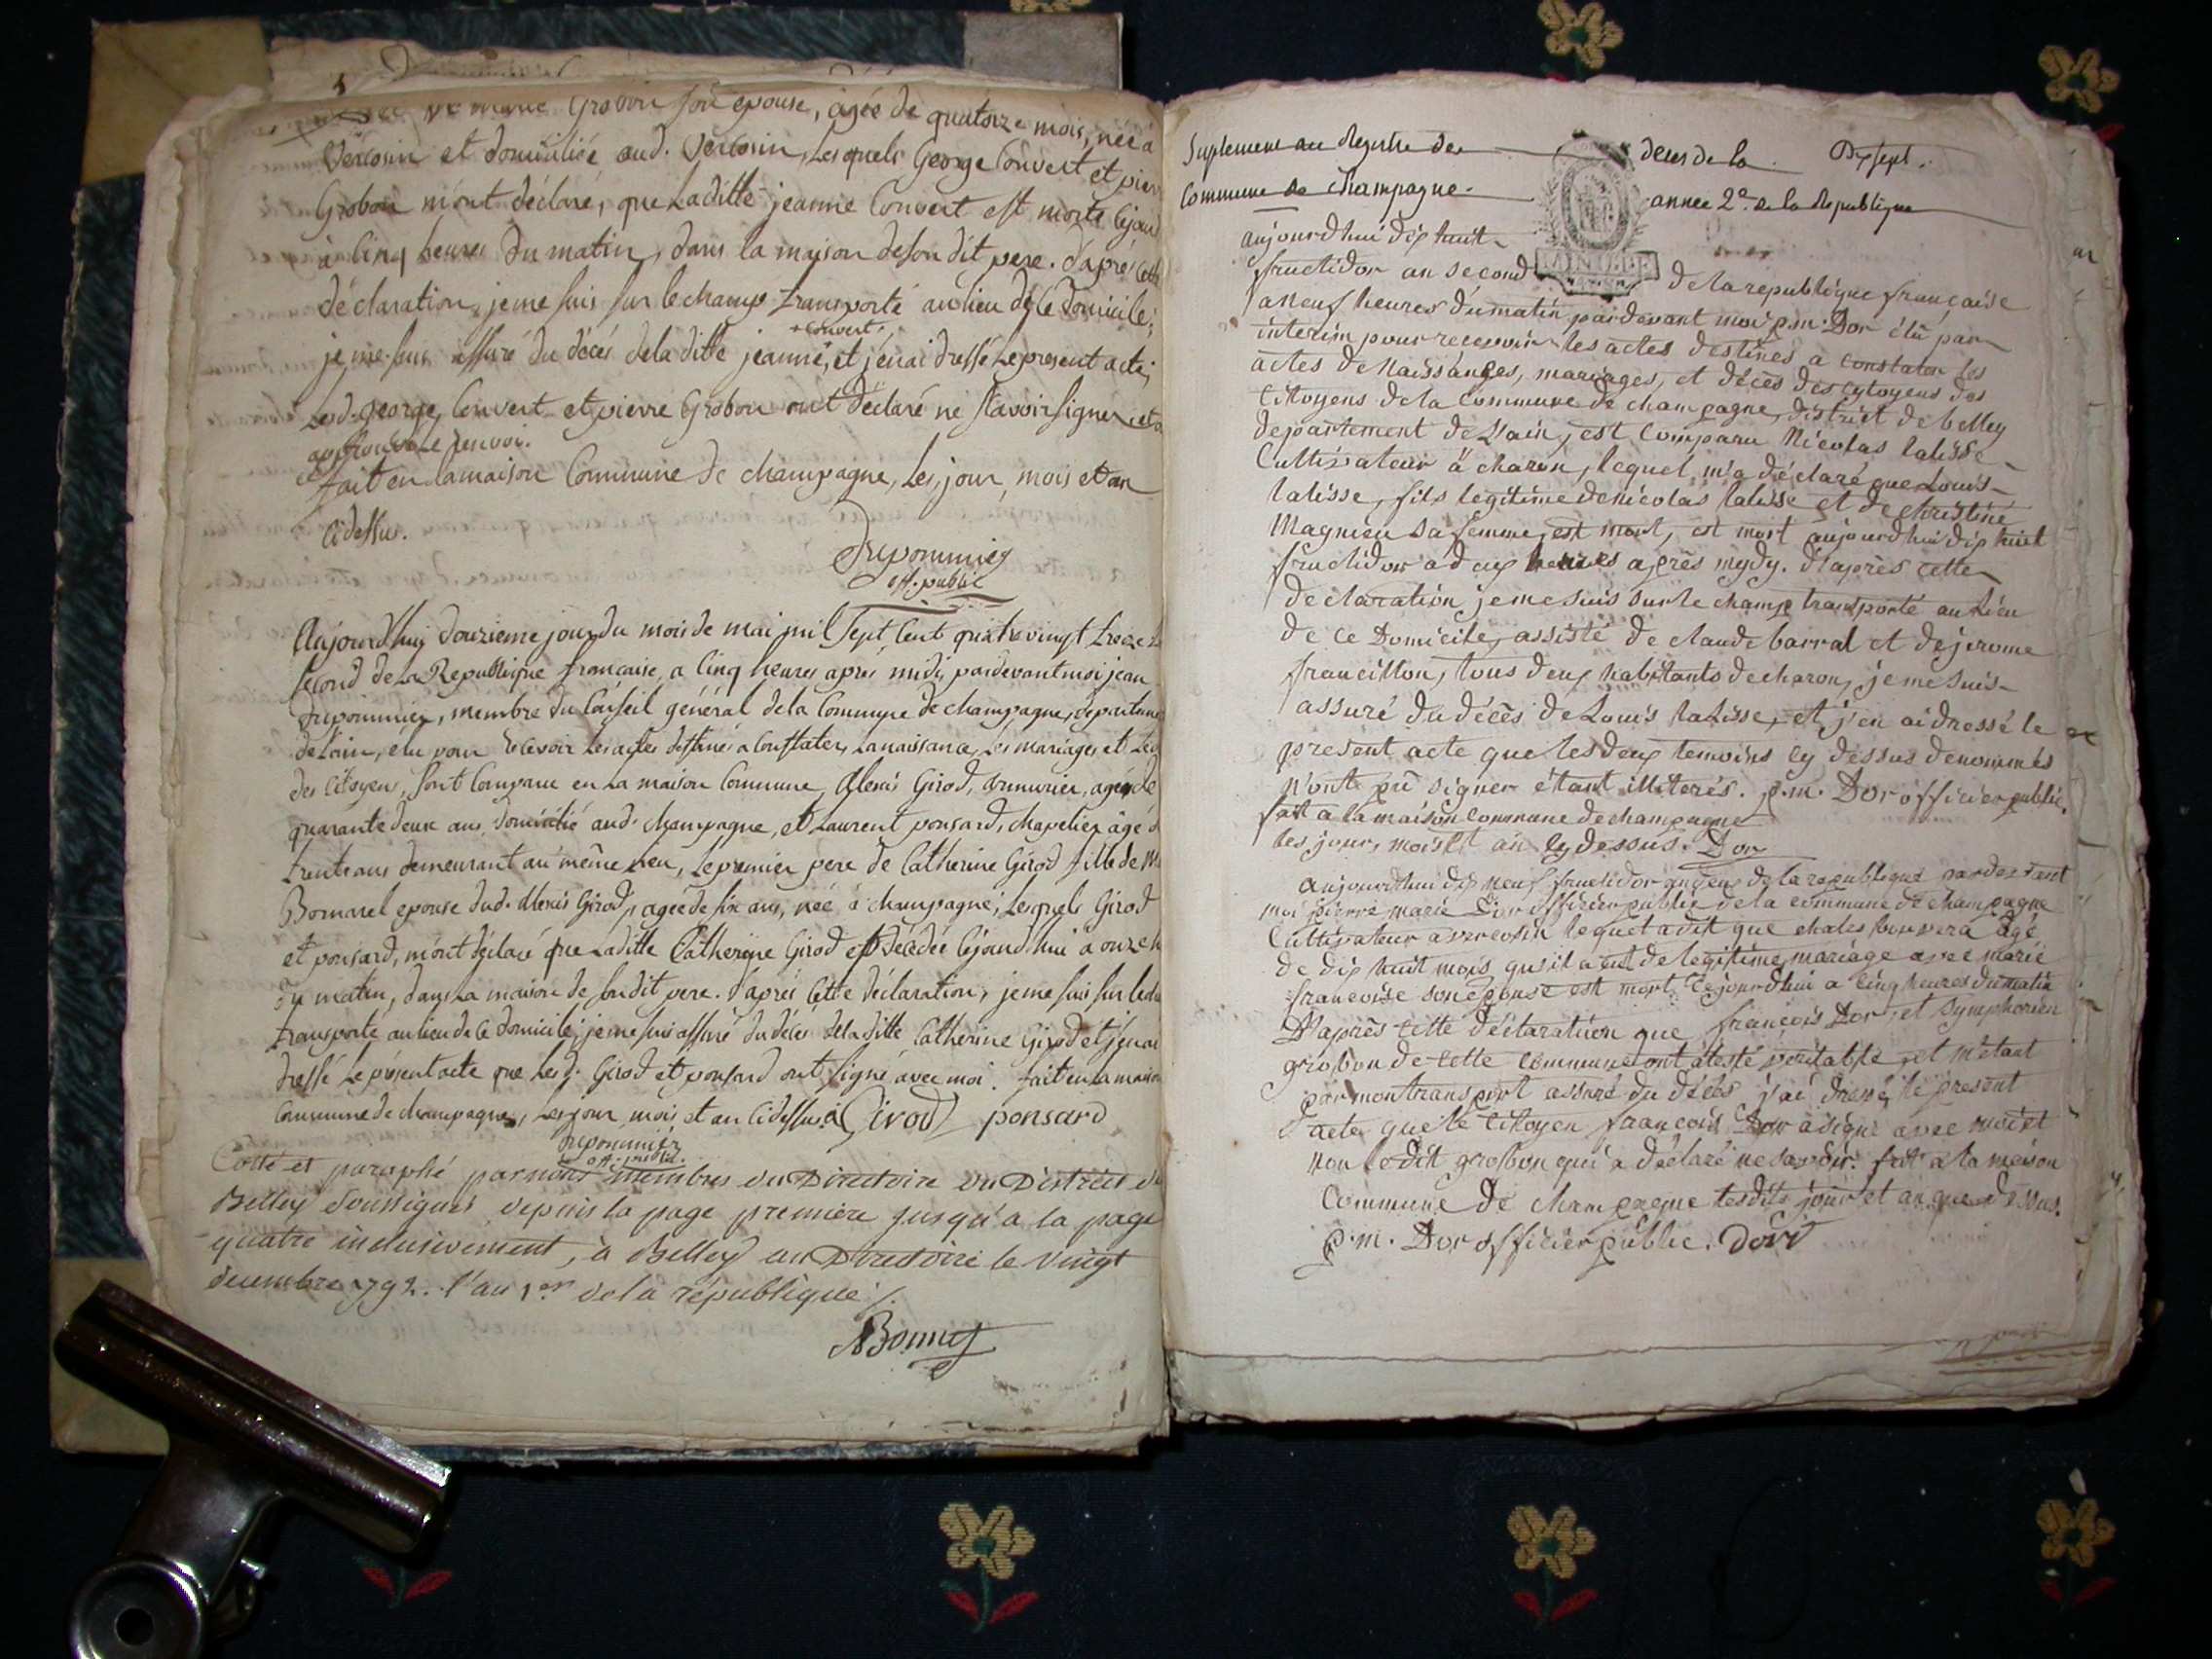 de marie Grobon son epouse, âgée de quatorze mois, née a
Vercosin et domiciliée aud. Vercosin, Lesquels George Convert et pierre
Grobon m'ont déclaré, que Laditte jeanne Convert est morte cejourd
à Cinq heures du matin, dans la maison de son dit pere. d'après cette
déclaration, je me suis sur le champ transporté au lieu de ce domicile;
+ Convert
je me suis assuré du décès de la ditte jeanne, et j'en ai dressé Le present acte;
Lesd. George Convert et pierre Grobon ont déclaré ne sçavoir signer,
approuvé Le renvoi.
fait en la maison Commune de champagne, Les jour, mois et an
Ci dessus.
Drepommier
off. public
Aujourd'huy douzieme jour du mois de mai mil sept Cent quatre vingt treize
second de La Republique française, a Cinq heures après midi, pardevant moi jean
Drepommier, membre du Conseil général de la Commune de champagne, departement
de L'ain, élu pour recevoir Les actes destinés a Constater, La naissance, Les mariages et Les
des Citoyens, sont Comparu en La maison Commune, Alexis Girod, armurier, agé de
quarante deux ans domicilié aud. Champagne, et Laurent ponsard, chapelier âgé
trente ans demeurant au même Lieu, Le premier pere de Catherine Girod fille de
Bornarel epouse dud. Alexis Girod, agée de six ans, née à champagne; Lesquels Girod
et ponsard, m'ont déclaré que Laditte Catherine Girod est décédée cejourd'hui a onze h
du matin, dans La maison de sondit pere. d'après Cette déclaration, je me suis sur le
transporté au lieu de ce domicile; je me suis assuré du décès de la ditte Catherine Girod et j'en ai
dressé Le présent acte que Lesd. Girod et ponsard ont signé avec moi. fait en La maison
Commune de champagne, Les jour, mois et an Ci dessus. a Girod ponsard
Drepommier
off. public.
Cotté et paraphé par nous membres du Directoire du District de
Belley soussignés depuis la page première jusqu'a la page
quatre inclusivement, à Belley au Directoire le vingt
decembre 1792. l'an 1er de la république
Bonnet
Suplement au Registre des deces de la Dix sept.
Commune de Champagne. annee 2e. de la Republique
aujourdhui dix huit
fructidor an second de la republique française
a neuf heures du matin pardevant moi p.m. Dor élû par
interim pour recevoir les actes destinés a constater les
actes de Naissances, mariages, et décès des cytoyens des
Citoyens de la Commune de champagne, district de belley
departement de L'ain, est Comparu Nicolas lalisse
Cultivateur à charon, lequel m'a déclaré que Louis
lalisse, fils legitime de nicolas lalisse et de christine
Magnieu sa femme, est mort, est mort aujourdhui dix huit
fructidor a deux heures après mydy. d'après cette
declaration je me suis sur le champ transporté au Lieu
de ce Domicile, assisté de claude barral et de jerome
francillon, tous deux habitants de charon, je me suis
assuré du décès de Louis lalisse, et j'en ai dressé le
present acte que les deux temoins cy dessus denommés
n'ont pû signer étant illiterés. p.m. Dor officier public.
fait a la maison Commune de champagne
les jour, mois et an cy dessus. Dor
aujourdhui dix neuf fructidor an deux de la republique pardevant
moi pierre marie Dor officier public de la commune de champagne
Cultivateur a vercosin lequel a dit que
de dix huit mois qu'il a eut de legitime mariage avec marie
francoise son epouse est mort Cejourdhui a cinq heures du matin
D'après cette déclaration que francois Dor, et Symphorien
grosbon de cette commune ont atesté veritable, et m'étant
par mon transport assuré du décès j'ai dressé le present
acte que le Citoyen francois Dor a signé avec moi et
non ledit grosbon qui a déclaré ne savoir. fait a la maison
Commune de champagne lesdits jour et an que dessus.
p.m. Dor officier public. Dor